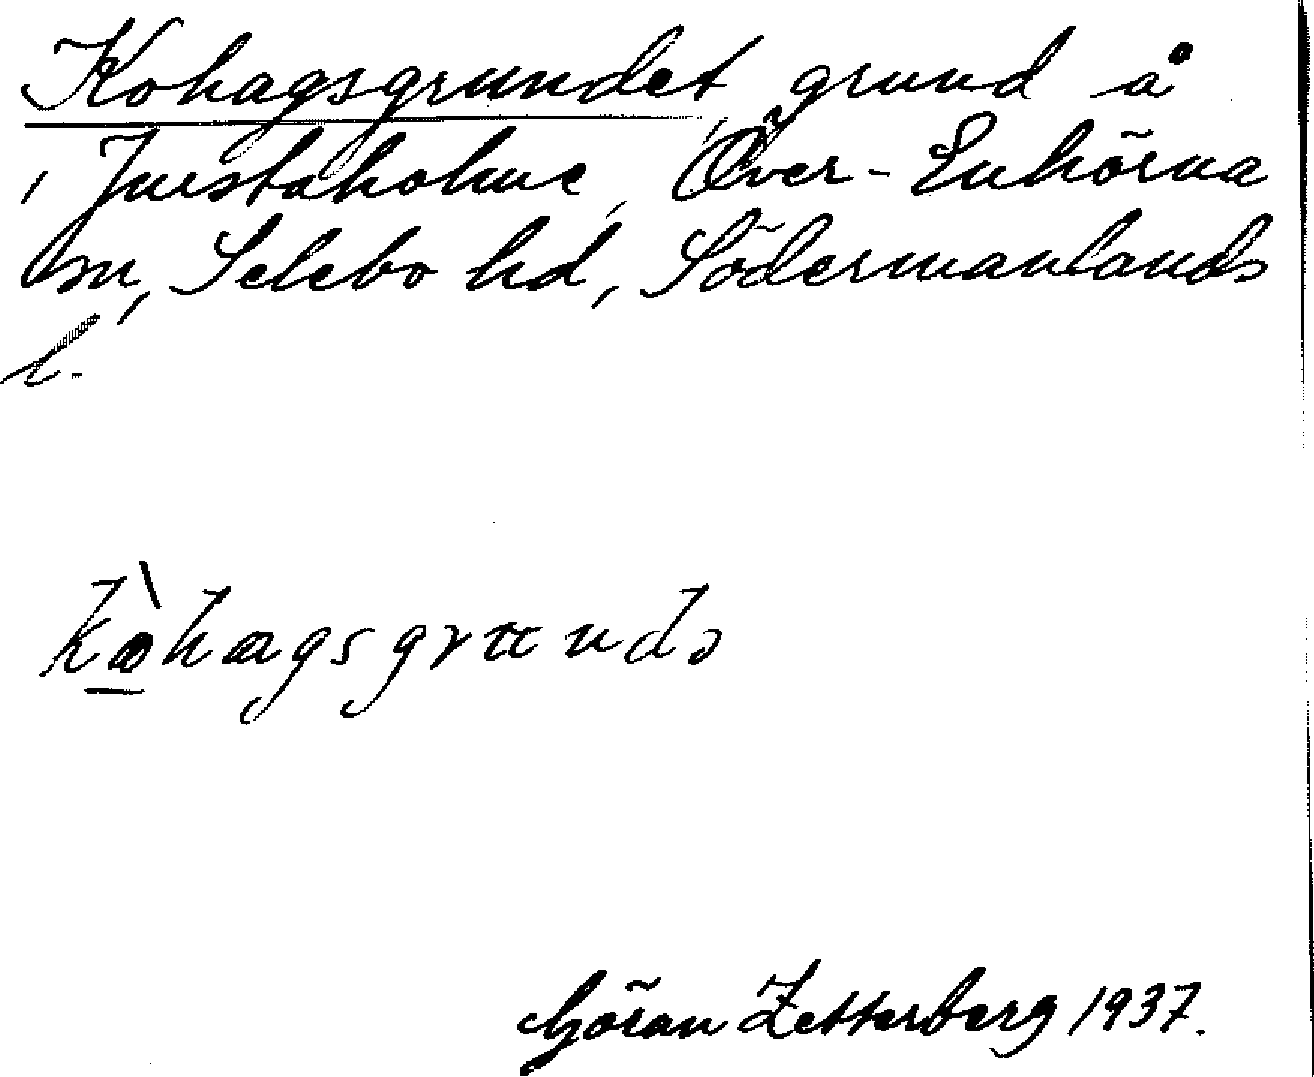 Kohagsgrundet, grund å
, Jurstaholme, Över-Enhörna
sn, Selebo hd, Södermanlands
l.
Göran Zetterberg 1937.